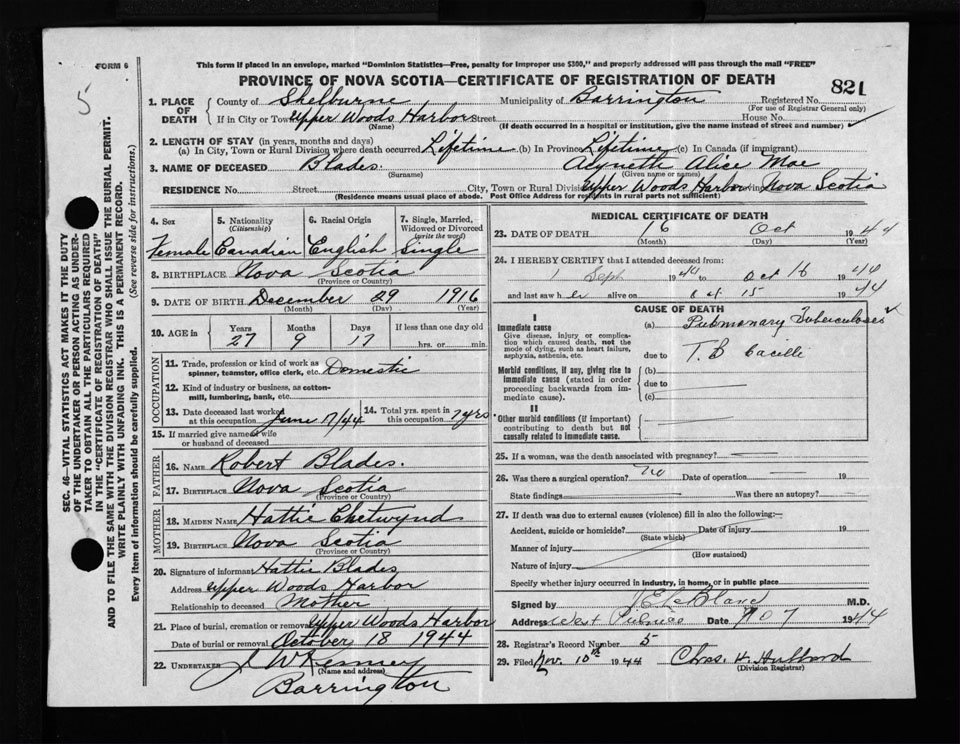 This form if placed in an envelope, marked "Dominion Statistics—Free, penalty for improper use $300," and properly addressed will pass through the mail "FREE"
FORM 6
5
PROVINCE OF NOVA SCOTIA—CERTIFICATE OF REGISTRATION OF DEATH
821
1. PLACE OF DEATH County of Shelburne Municipality of Barrington Registered No.
(For use of Registrar General only)
If in City or Town Upper Woods Harbor Street House No.
(Name) (If death occurred in a hospital or institution, give the name instead of street and number)
2. LENGTH OF STAY (in years, months and days)
(a) In City, Town or Rural Division where death occurred Lifetime (b) In Province Lifetime (c) In Canada (if immigrant)
3. NAME OF DECEASED Blades. Alice Mae
(Surname) (Given name or names)
RESIDENCE No. Street City, Town or Rural Division Upper Woods Harbor Nova Scotia
(Residence means usual place of abode. Post Office Address for residents in rural parts not sufficient)
4. Sex 5. Nationality (Citizenship) 6. Racial Origin 7. Single, Married, Widowed or Divorced (write the word)
Female Canadian English Single
8. BIRTHPLACE Nova Scotia
(Province or Country)
9. DATE OF BIRTH December 29 1916
(Month) (Day) (Year)
10. AGE in Years Months Days If less than one day old
27 9 17 hrs. or min.
OCCUPATION
11. Trade, profession or kind of work as spinner, teamster, office clerk, etc. Domestic
12. Kind of industry or business, as cotton-mill, lumbering, bank, etc.
13. Date deceased last worked at this occupation June 17/44 14. Total yrs. spent in this occupation 7 yrs
15. If married give name of wife or husband of deceased
FATHER
16. NAME Robert Blades.
17. BIRTHPLACE Nova Scotia
(Province or Country)
MOTHER
18. MAIDEN NAME Hattie Chetwynd
19. BIRTHPLACE Nova Scotia
(Province or Country)
20. Signature of informant Hattie Blades
Address Upper Woods Harbor
Relationship to deceased Mother
21. Place of burial, cremation or removal Upper Woods Harbor
Date of burial or removal October 18 1944
22. UNDERTAKER J W Kenney
(Name and address)
Barrington
MEDICAL CERTIFICATE OF DEATH
23. DATE OF DEATH 16 Oct 1944
(Month) (Day) (Year)
24. I HEREBY CERTIFY that I attended deceased from:
1 Sept 1944 to Oct 16 1944
and last saw her alive on Oct 15 1944
CAUSE OF DEATH
I
Immediate cause
Give disease, injury or complication which caused death, not the mode of dying, such as heart failure, asphyxia, asthenia, etc.
(a) Pulmonary Tuberculosis
due to T. B bacilli
Morbid conditions, if any, giving rise to immediate cause (stated in order proceeding backwards from immediate cause).
(b)
due to
(c)
II
Other morbid conditions (if important) contributing to death but not causally related to immediate cause.
25. If a woman, was the death associated with pregnancy?
26. Was there a surgical operation? no Date of operation 19
State findings Was there an autopsy?
27. If death was due to external causes (violence) fill in also the following:
Accident, suicide or homicide? Date of injury 19
(State which)
Manner of injury
(How sustained)
Nature of injury
Specify whether injury occurred in industry, in home, or in public place
Signed by J E LeBlanc M.D.
Address West Pubnico Date Nov 7 1944
28. Registrar's Record Number 5
29. Filed Nov. 10th 1944 Chas. H. Hubbard
(Division Registrar)
SEC. 46—VITAL STATISTICS ACT MAKES IT THE DUTY
OF THE UNDERTAKER OR PERSON ACTING AS UNDER-
TAKER TO OBTAIN ALL THE PARTICULARS REQUIRED
IN THE "CERTIFICATE OF REGISTRATION OF DEATH"
AND TO FILE THE SAME WITH THE DIVISION REGISTRAR WHO SHALL ISSUE THE BURIAL PERMIT.
WRITE PLAINLY WITH UNFADING INK. THIS IS A PERMANENT RECORD.
Every item of information should be carefully supplied. (See reverse side for instructions.)